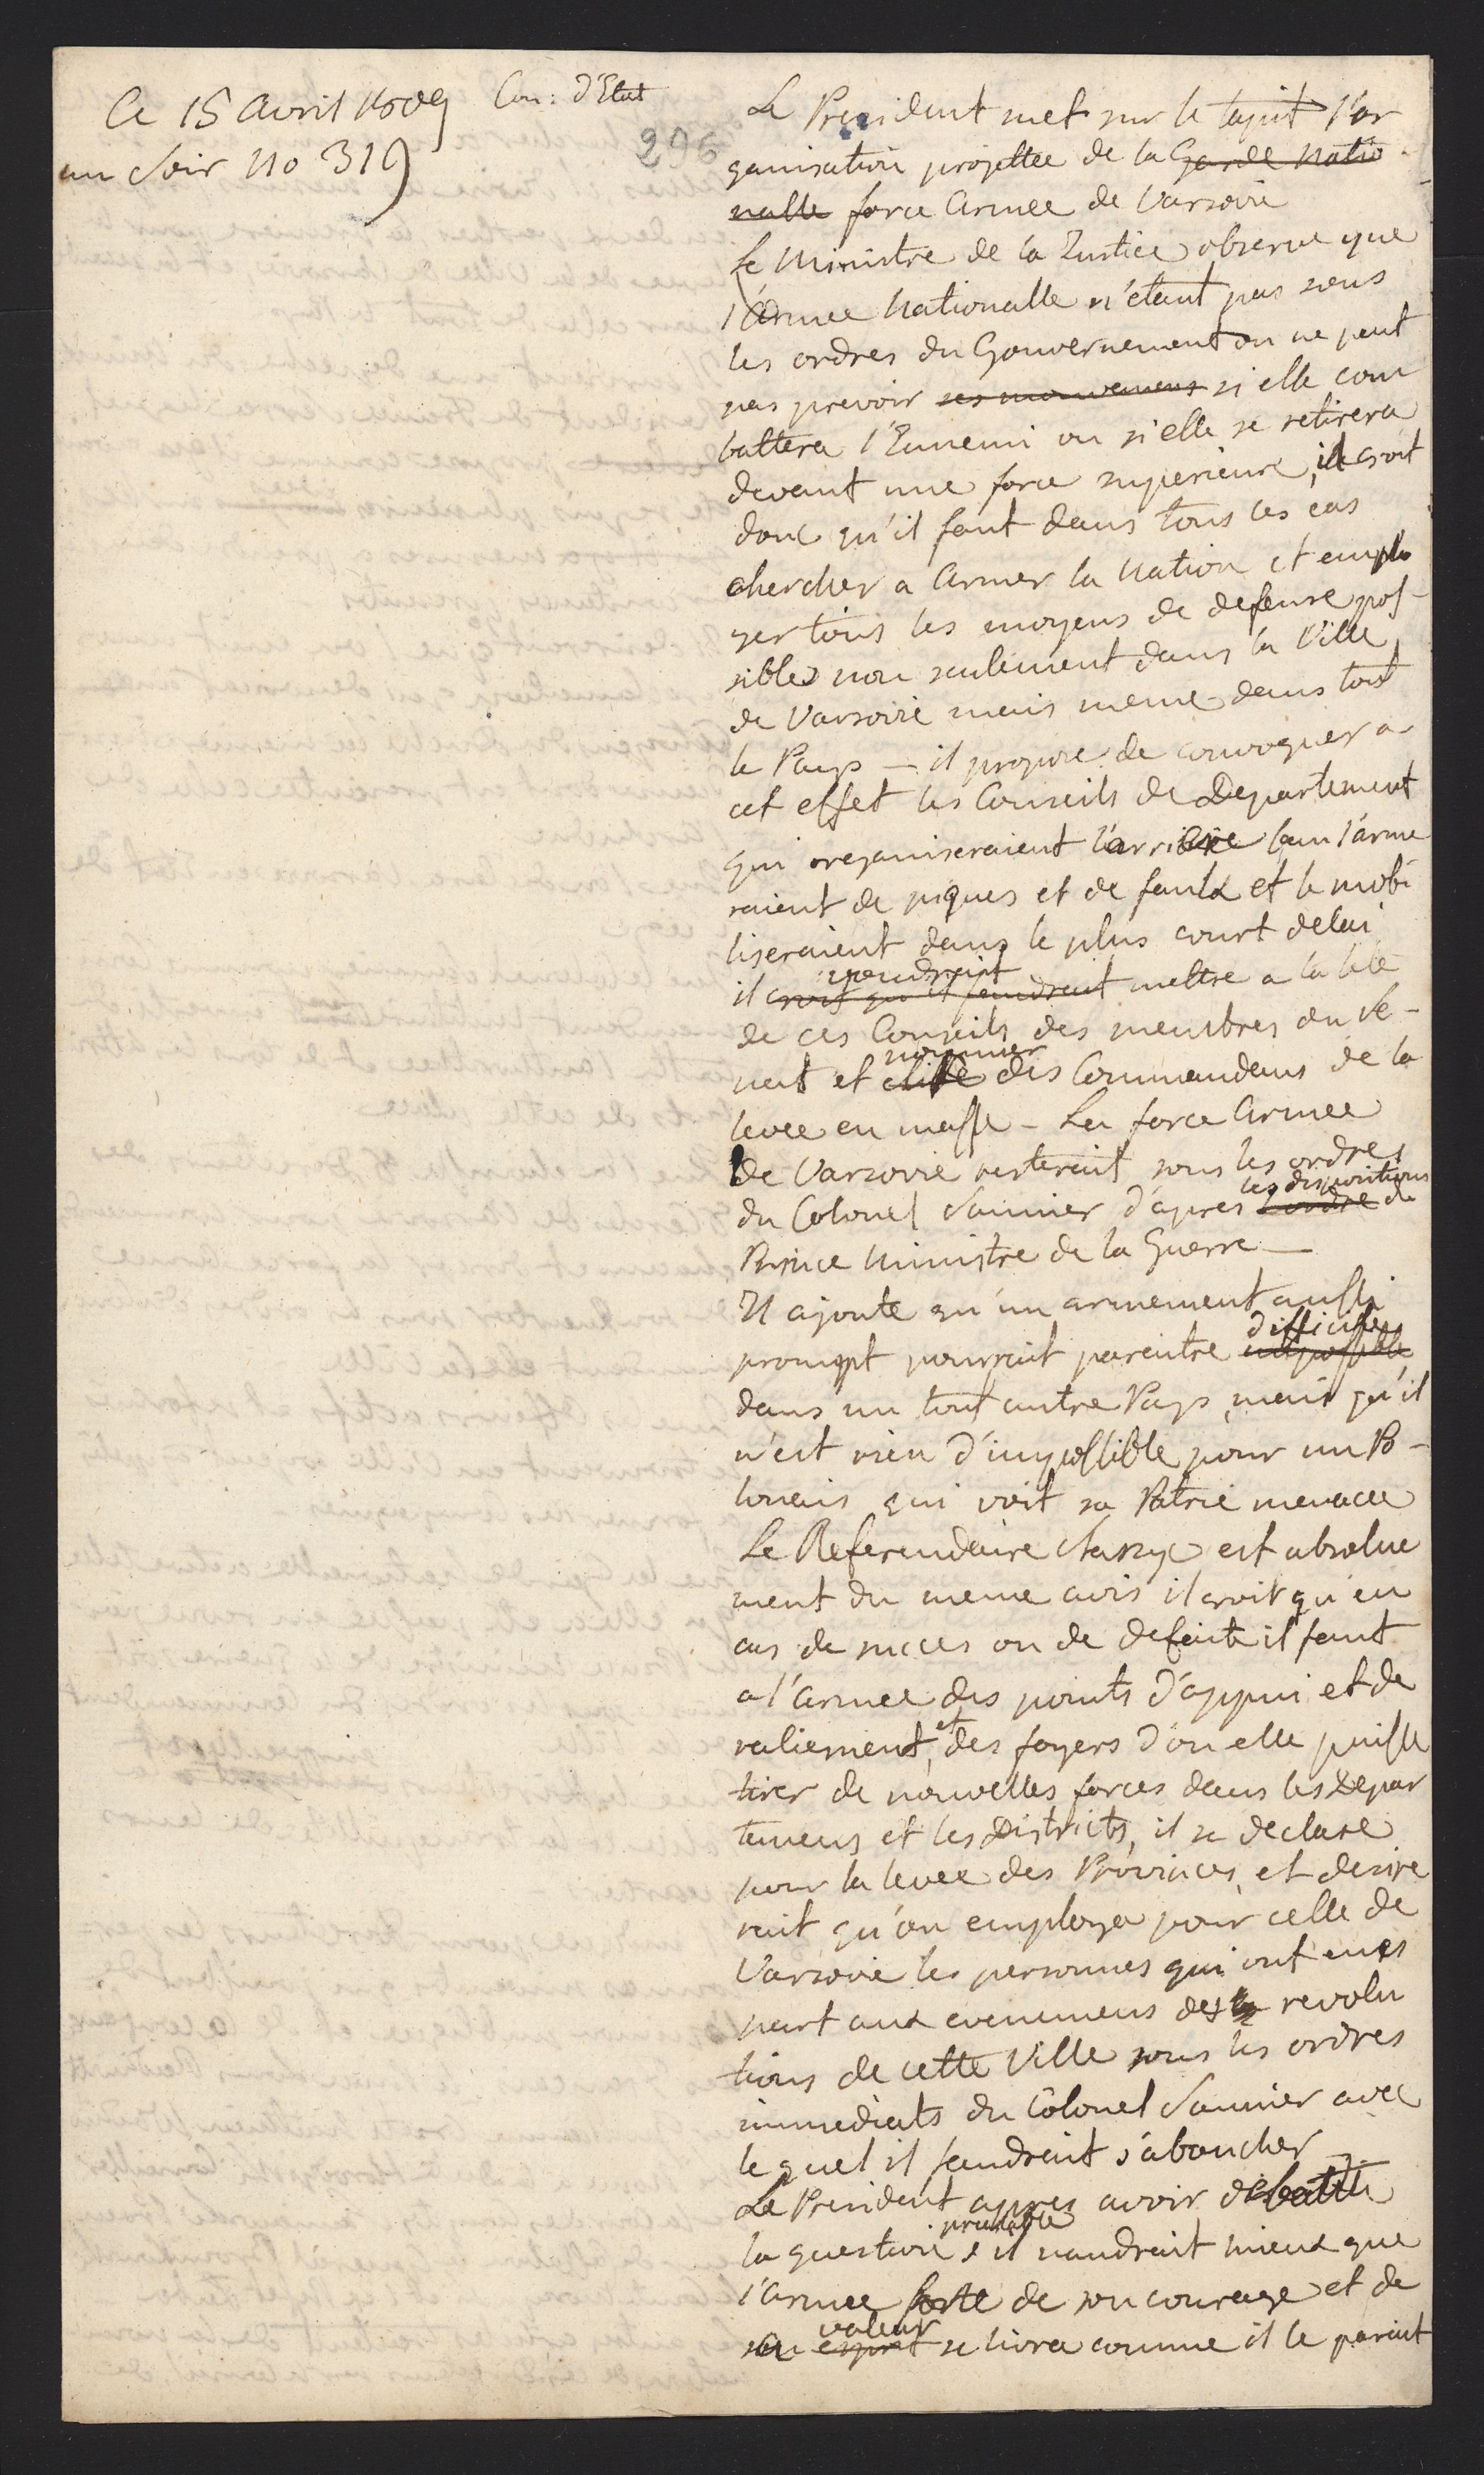 Ce 15 Avril 1809 Con: d'Etat
au Soir No 319
296
Le President met sur le tapit l'or
ganisation projettee de la Garde Natio
nalle force Armee de Varsovie
Le Ministre de la Justice observe que
l'Armee Nationalle n'etant pas sous
les ordres du Gouvernement on ne peut
pas prevoir ses mouvemens si elle com
battera l'Ennemi ou si elle se retirera
devant une force superieure, il croit
donc qu'il faut dans tous les cas
chercher a Armer la Nation et emplo
yer tous les moyens de defense pos-
sibles non seulement dans la Ville
de Varsovie mais meme dans tout
le Pays – il propose de convoquer a
cet effet les Conseils de Departement
qui oreganiseraient l'arriere ban l'arme
raient de piques et de faulx et le mobi
liseraient dans le plus court delai
voudrait
il croit qu'il faudrait mettre a la tete
de ces Conseils des membres du Se-
nommer
nat et des Commandans de la
levee en masse – La force Armee
de Varsovie resterait sous les ordres
les dispositions
du Colonel Saunier d'apres l'ordre du
Prince Ministre de la Guerre –
Il ajoute qu'un armement aussi
difficile
prompt pourrait paroitre impossible
dans un tout autre Pays, mais qu'il
n'est rien d'impossible pour un Po-
lonais qui voit sa Patrie menacee
Le Referendaire est absolue
ment du meme avis il croit qu'en
cas de succes ou de defaite il faut
a l'armee des points d'appui et de
et
raliement, des foyers d'ou elle puisse
tirer de nouvelles forces dans les Depar
temens et les Districts, il se declare
pour la levee des Provinces, et desire
rait qu'on employa pour celle de
Varsovie les personnes qui ont eues
part aux evenemens des la revolu
tions de cette Ville sous les ordres
immediats du Colonel Saunier avec
le quel il faudrait s'aboucher –
Le President apres avoir debattu
prealable
la question s'il vaudrait mieux que
l'armee forte de son courage et de
valeur
sa esprit se livra comme il le parait